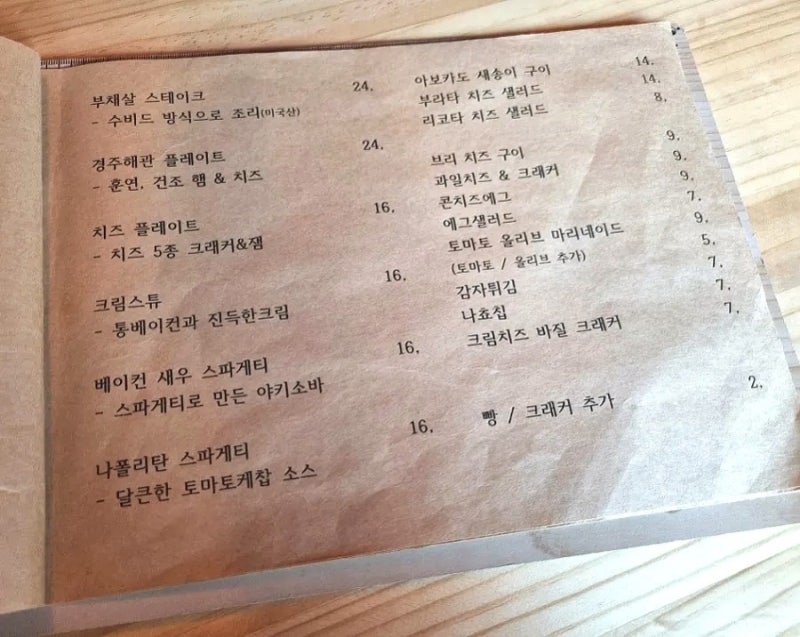 부채살 스테이크 24.
- 수비드 방식으로 조리(미국산)
경주해관 플레이트 24.
- 훈연, 건조 햄 & 치즈
치즈 플레이트 16.
- 치즈 5종 크래커&잼
크림스튜 16.
- 통베이컨과 진득한크림
베이컨 새우 스파게티 16.
- 스파게티로 만든 야키소바
나폴리탄 스파게티 16.
- 달큰한 토마토케찹 소스
아보카도 새송이 구이 14.
부라타 치즈 샐러드 14.
리코타 치즈 샐러드 8.
브리 치즈 구이 9.
과일치즈 & 크래커 9.
콘치즈에그 9.
에그샐러드 7.
토마토 올리브 마리네이드 9.
(토마토 / 올리브 추가) 5.
감자튀김 7.
나쵸칩 7.
크림치즈 바질 크래커 7.
빵 / 크래커 추가 2.